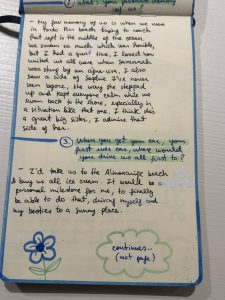 ② what's your favourite memory
of us?
- My fav memory of us is when we were
in Porto Pim beach trying to reach
that raft in the middle of the ocean,
we swam so much which was horrible,
but I had a great time, I loved how
united we all were when Savannah
was stung by an água-viva, I also
saw a side of Sophie I've never
seen before, the way she stepped
up and kept everyone calm while we
swam back to the shore, especially in
a situation like that one. I think she's
a great big sister, I admire that
side of her.
③ when you get your car, your
first ever car, where would
you drive us all first to?
- I'd take us to the Almoxarife beach
& buy us all ice cream. It would be a
personal milestone for me, to finally
be able to do that, driving myself and
my besties to a sunny place.
continues...
(next page)